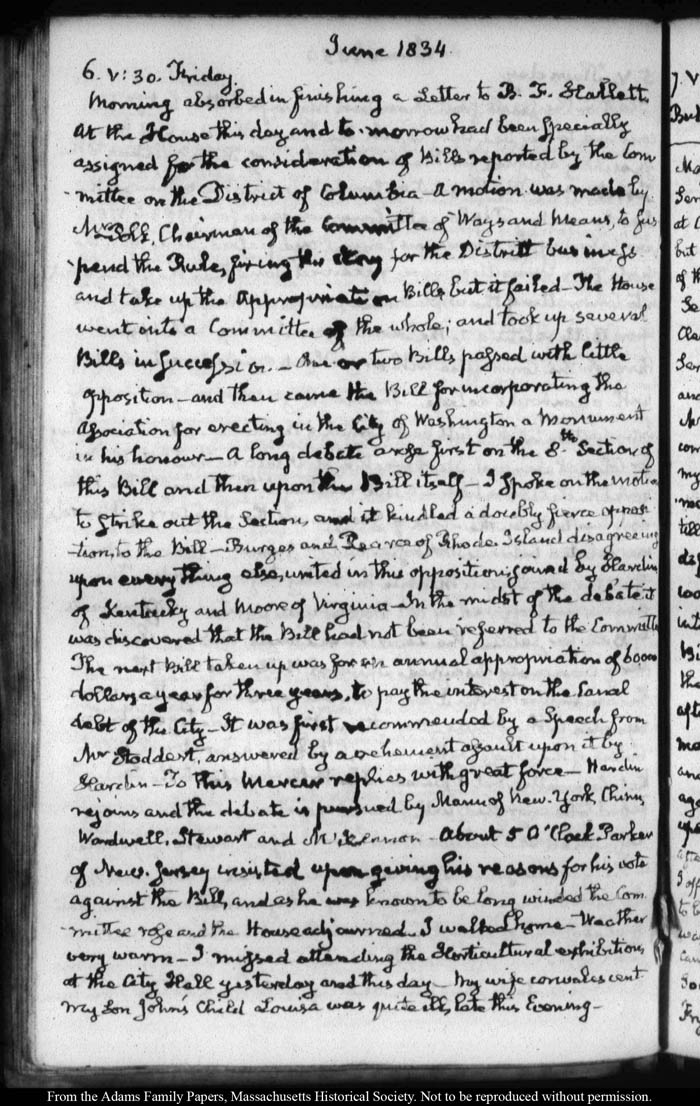 June 1834
6. V: 30. Friday.
Morning absorbed in finishing a Letter to B. F. Hallett.
At the House this day and to-morrow had been specially
assigned for the consideration of Bills reported by the Com
-mittee on the District of Columbia – A motion was made by
Mr Polk, Chairman of the Committee of Ways and Means, to sus
-pend the Rule, fixing this day for the District business
and take up the Appropriation Bills but it failed – The House
went into a Committee of the whole; and took up several
Bills in succession. – One or two Bills passed with little
opposition – and then came the Bill for incorporating the
Association for erecting in the City of Washington a Monument
in his honour – A long debate arose first on the 8th Section of
this Bill and then upon the Bill itself – I spoke on the motion
to strike out the Section, and it kindled a doubly fierce opposi
-tion, to the Bill – Burges and Pearce of Rhode-Island disagreeing
upon every thing else, united in this opposition, joined by Hardin
of Kentucky and Moore of Virginia – In the midst of the debate it
was discovered that the Bill had not been referred to the Committee
The next Bill taken up was for an annual appropriation of 60000
dollars a year for three years, to pay the interest on the Canal
debt of the City – It was first recommended by a Speech from
Mr Stoddert, answered by a vehement assault upon it by
Hardin – To this Mercer replies with great force – Hardin
rejoins and the debate is pursued by Mann of New-York, Chinn,
Wardwell, Stewart and McKennon – About 5 O'Clock Parker
of New-Jersey insisted upon giving his reasons for his vote
against the Bill, and as he was known to be long winded the Com
-mittee rose and the House adjourned. I walked home – Weather
very warm – I missed attending the Horticultural exhibition,
at the City Hall yesterday and this day – My wife convalescent
my Son John's Child Louisa was quite ill, late this Evening –
From the Adams Family Papers, Massachusetts Historical Society. Not to be reproduced without permission.